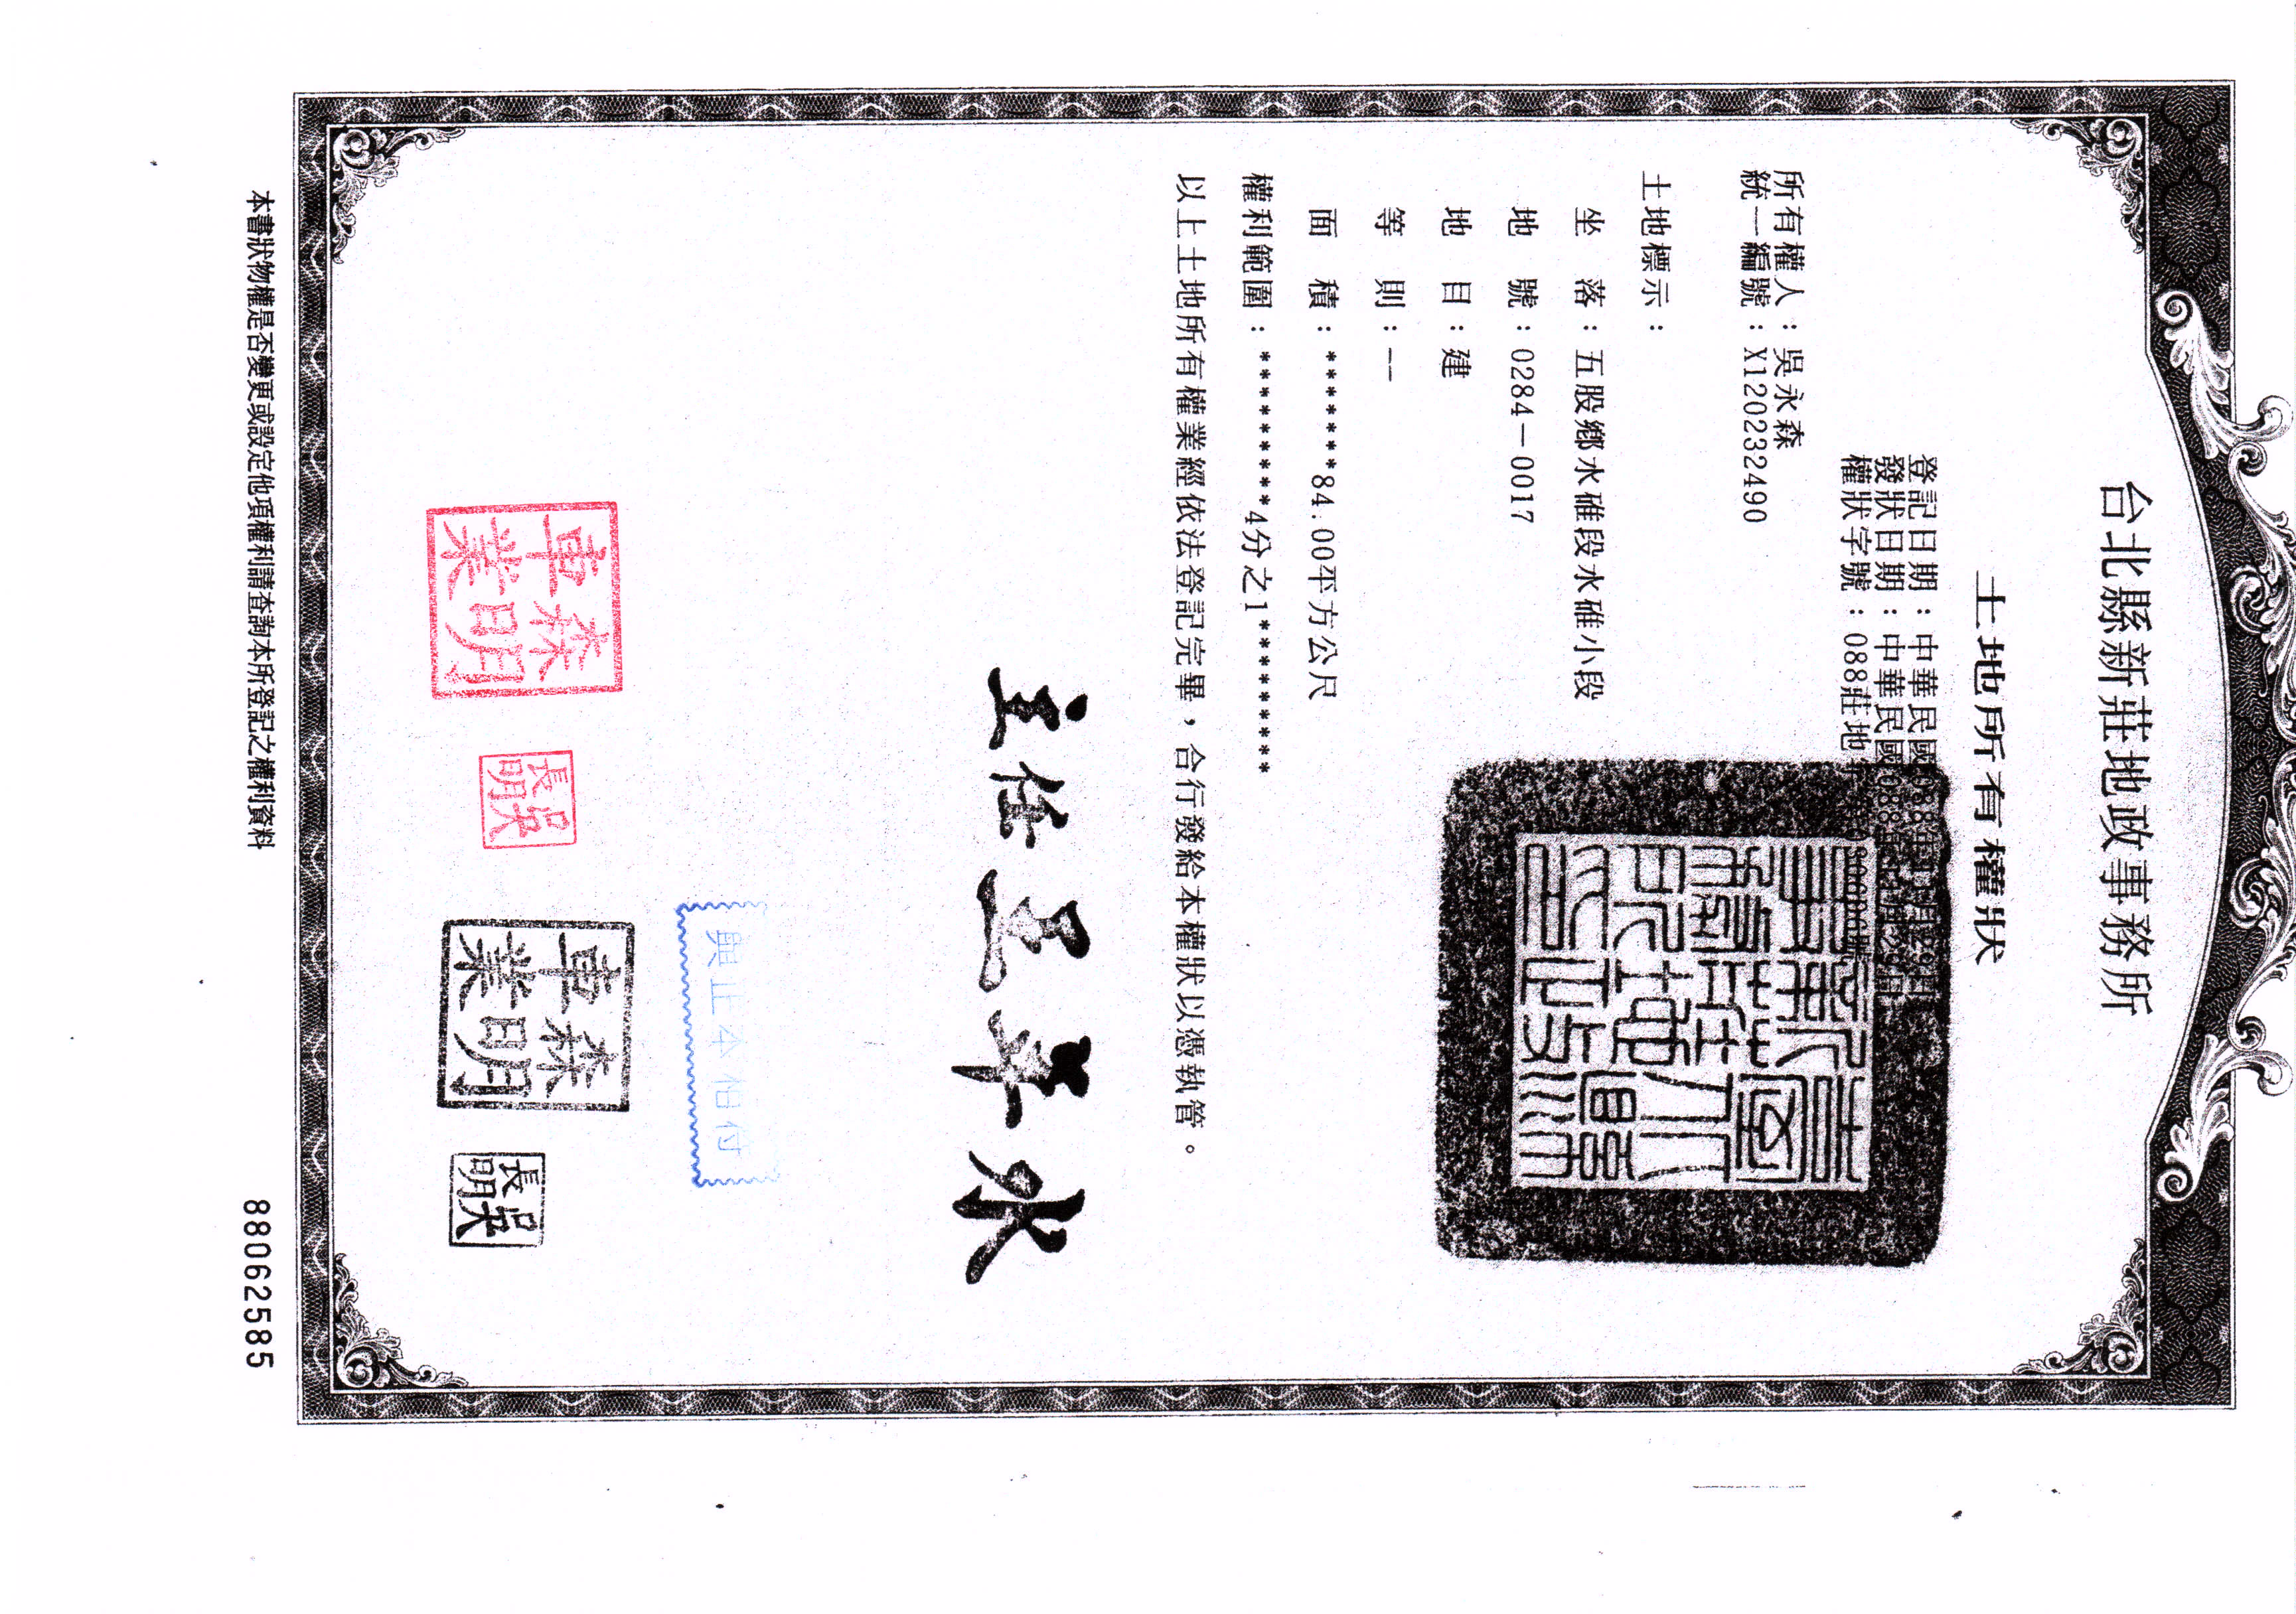 台北縣新莊地政事務所
土地所有權狀
登記日期：中華民國088年11月29日
發狀日期：中華民國088年
權狀字號：088莊地
所有權人：吳永森
統一編號：X120232490
土地標示：
坐落：五股鄉水碓段水碓小段
地號：0284－0017
地目：建
等則：--
面積：*******84.00平方公尺
權利範圍：*********4分之1*********
以上土地所有權業經依法登記完畢，合行發給本權狀以憑執管。
主任
與正本相符
森明
車業
吳長明
森明
車業
吳長明
本書狀物權是否變更或設定他項權利請查詢本所登記之權利資料
88062585